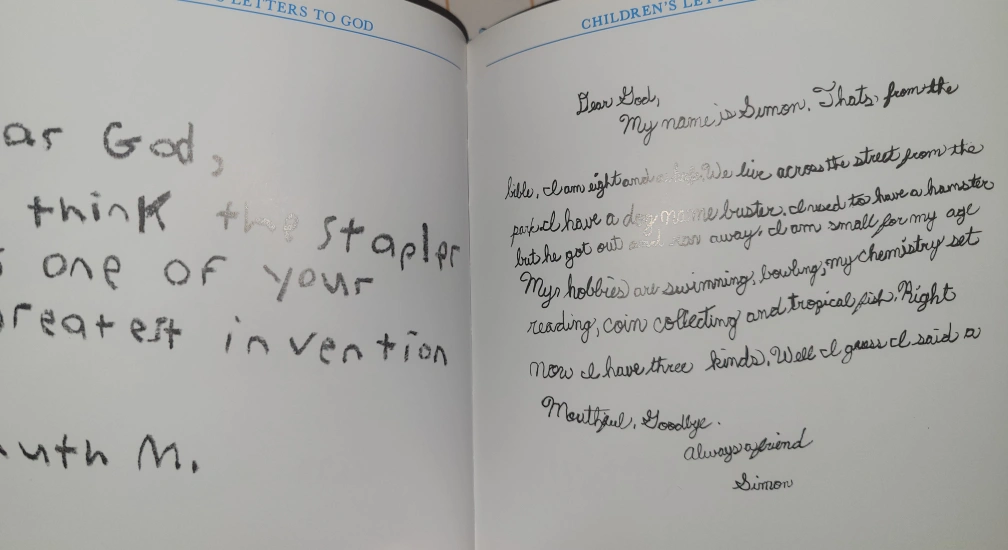 LETTERS TO GOD
God,
think the stapler
one of your
invention
M.
CHILDREN'S
Dear God,
My name is Simon. Thats from the
bible. I am eight and a We live across the street from the
park. I have a dog name buster. I used to have a hamster
but he got out and ran away. I am small for my age
My hobbies are swimming, bowling, my chemistry set
reading, coin collecting and tropical fish. Right
now I have three kinds. Well I guess I said a
Mouthful. Goodbye.
Always a friend
Simon